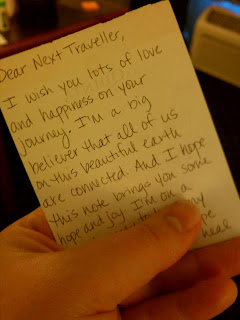 Dear Next Traveller,
I wish you lots of love
and happiness on your
journey. I'm a big
believer that all of us
on this beautiful earth
are connected. And I hope
this note brings you some
hope and joy. I'm on a
my
heal